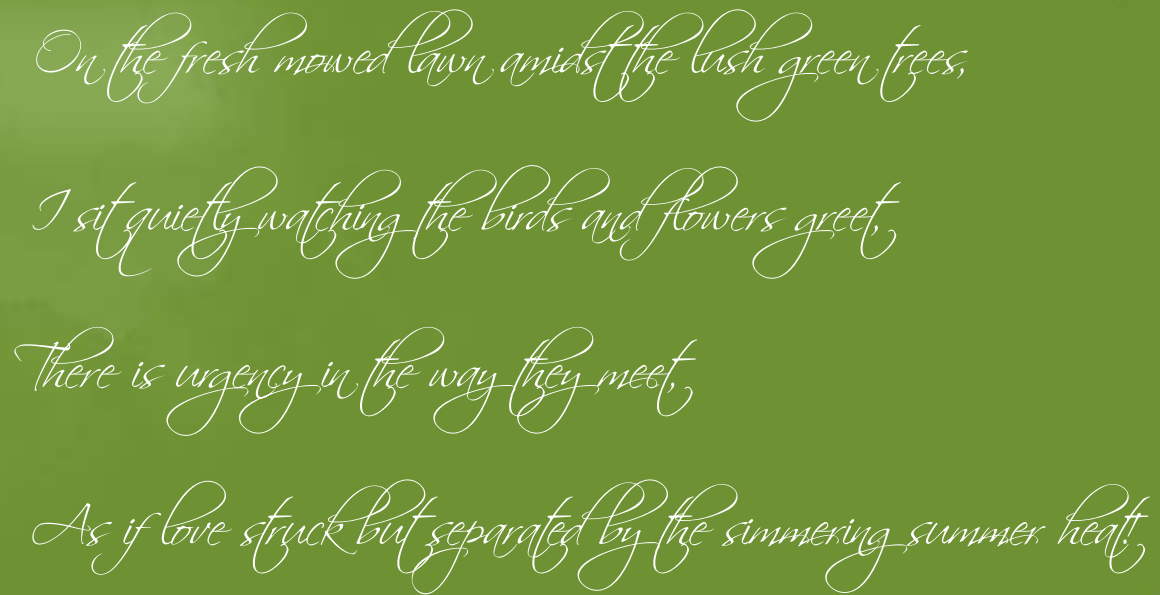 On the fresh mowed lawn amidst the lush green trees,
I sit quietly watching the birds and flowers greet,
There is urgency in the way they meet,
As if love struck but separated by the simmering summer heat!